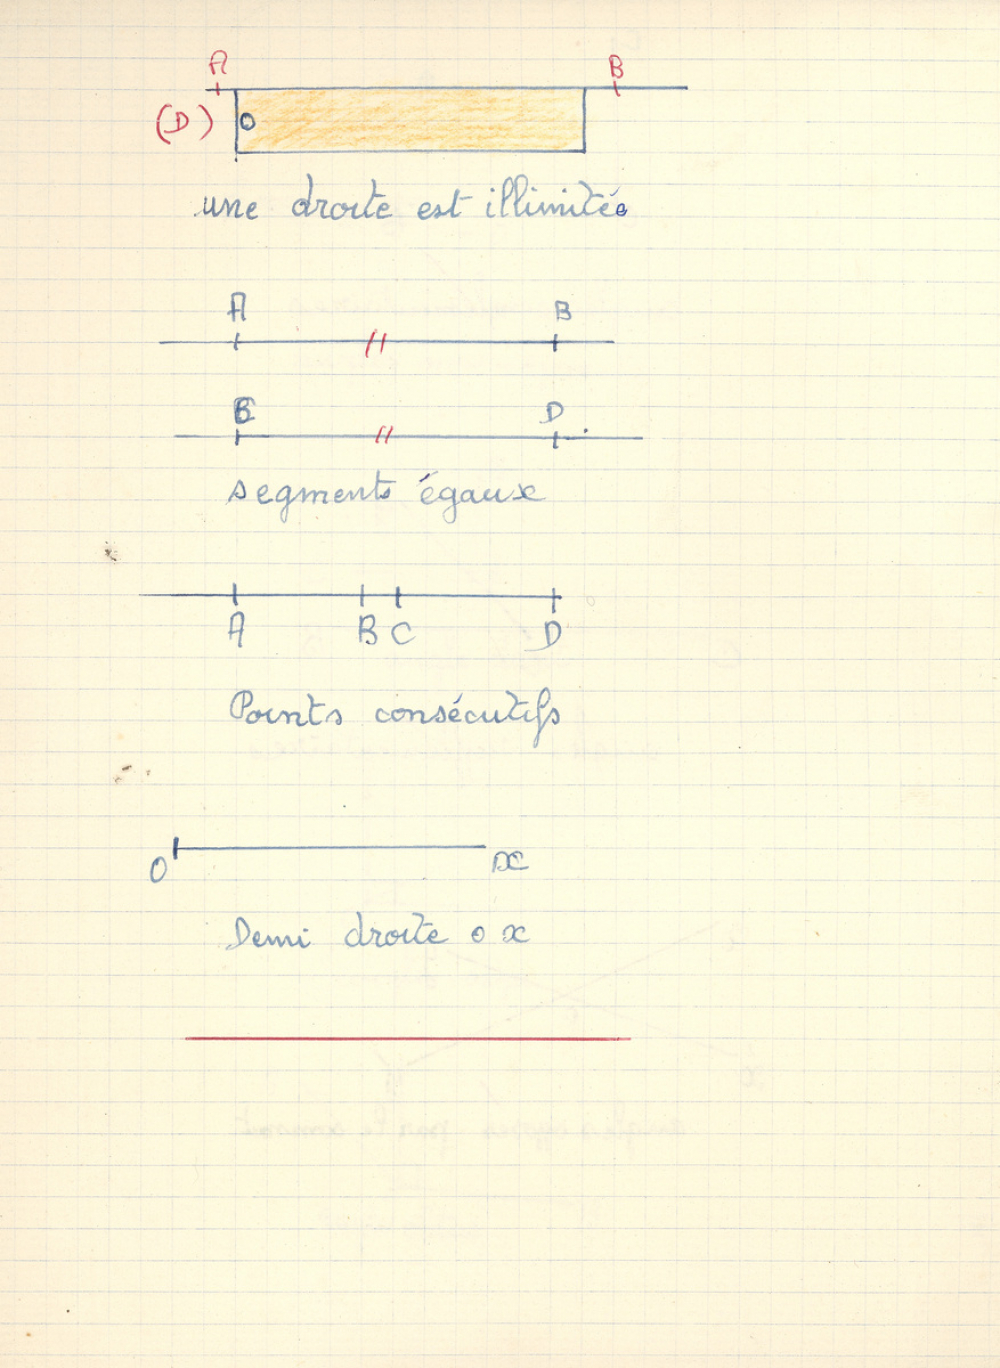 A B
(D)
une droite est illimitée
A B
C D
segments égaux
A B C D
Points consécutifs
O x
Demi droite o x